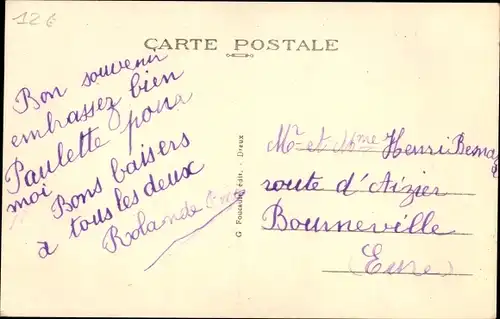 12€
CARTE POSTALE
Bon souvenir
embrassez bien
Paulette pour
moi
Bons baisers
à tous les deux
Rolande
G Foucault, édit. - Dreux
Mr et Mme Henri
route d'Aizier
Bourneville
(Eure)